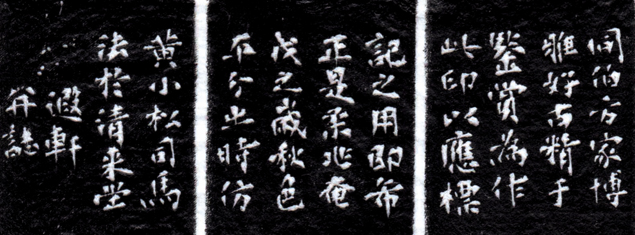 伯方家博
雅好古精于
鑒賞為作
此印以應標
記之用即希
正是柔兆奄
茂之歲秋色
平分之時仿
黃小松司馬
法於清來堂
遐軒
并誌